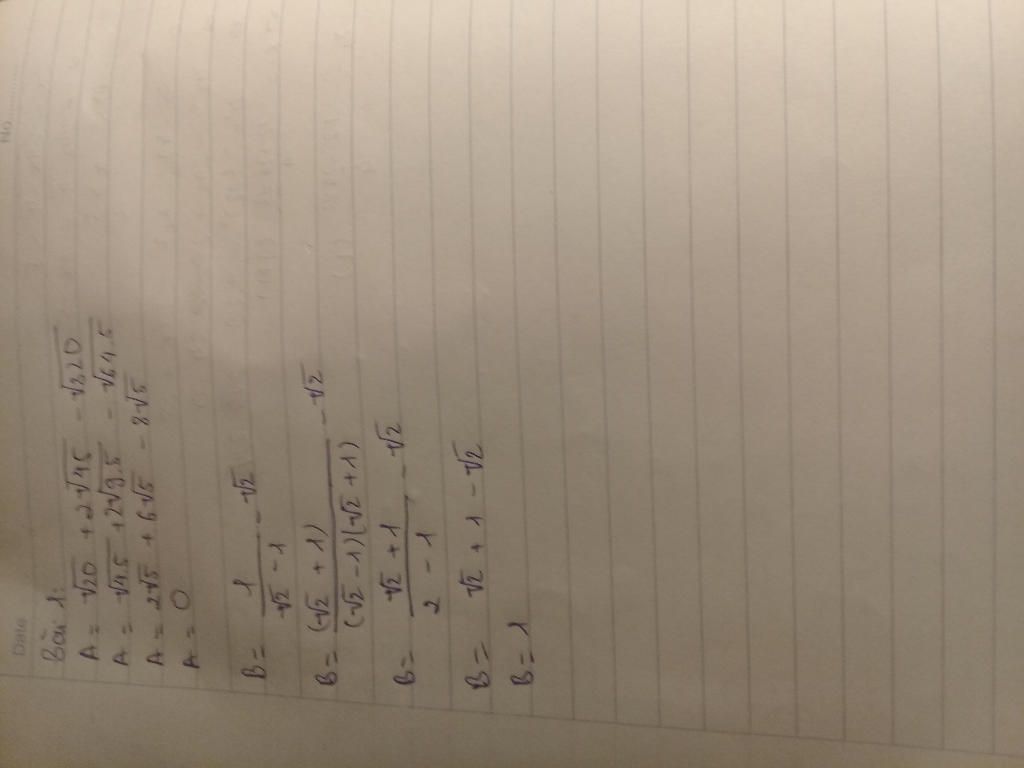 Date No.
Bài 1:
A = √20 + 2√45 - √320
A = √4.5 + 2√9.5 - √64.5
A = 2√5 + 6√5 - 8√5
A = 0
B = 1/(√2 - 1) - √2
B = (√2 + 1)/((√2 - 1)(√2 + 1)) - √2
B = (√2 + 1)/(2 - 1) - √2
B = √2 + 1 - √2
B = 1